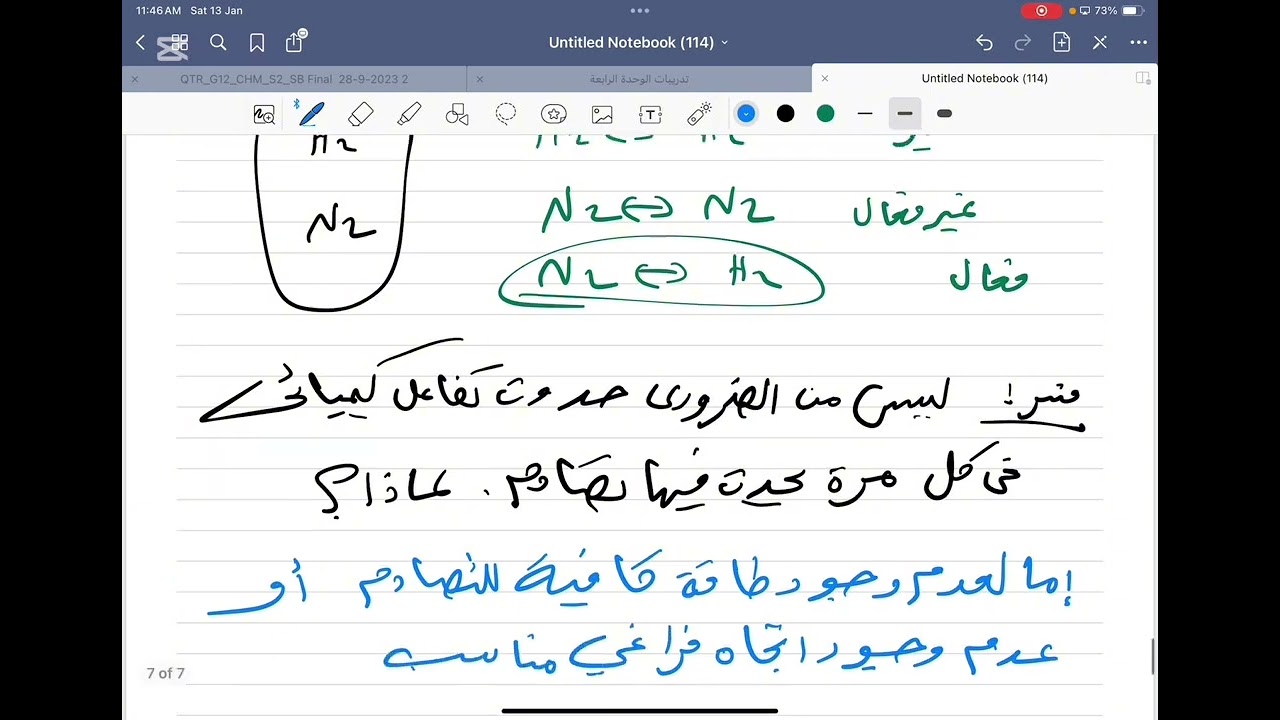 11:46 AM Sat 13 Jan
73%
Untitled Notebook (114)
QTR_G12_CHM_S2_SB Final 28-9-2023 2
تدريبات الوحدة الرابعة
Untitled Notebook (114)
H2
H2 ↔ H2
N2
N2 ↔ N2 غير فعال
N2 ↔ H2 فعال
فسر: ليس من الضرورى حدوث تفاعل كيميائى
فى كل مرة يحدث فيها تصادم. لماذا؟
إما لعدم وجود طاقة كافية للتصادم أو
عدم وجود اتجاه فراغي مناسب
7 of 7